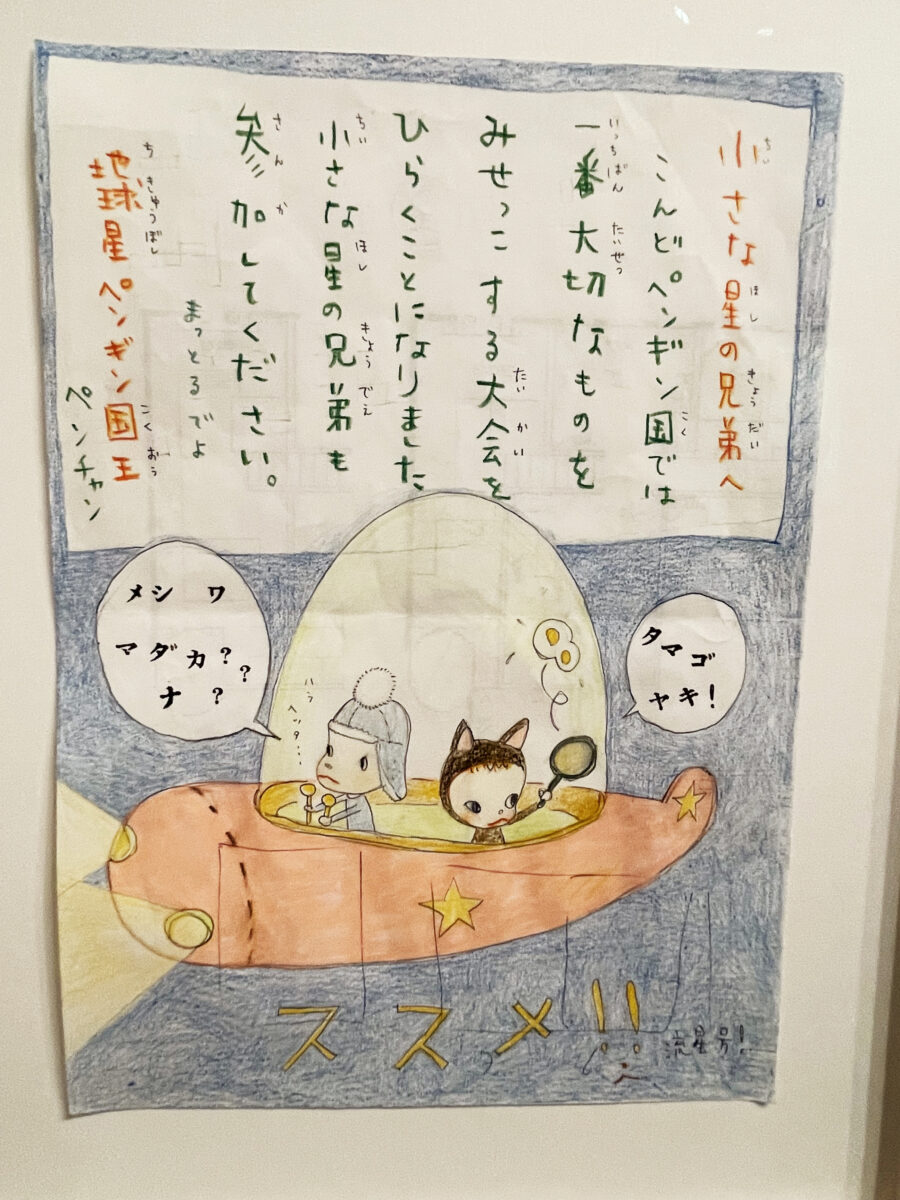 小さな星の兄弟へ
こんどペンギン国では
一番大切なものを
みせっこする大会を
ひらくことになりました
小さな星の兄弟も
参加してください。
まっとるでよ
地球星ペンギン国王
ペンチャン
タマゴ
ヤキ!
メシ ワ
マダカ??
ナ ?
ハラ
ヘッタ...
ススメ!!
流星号!